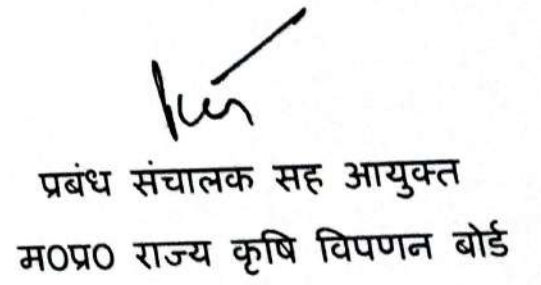 प्रबंध संचालक सह आयुक्त
म०प्र० राज्य कृषि विपणन बोर्ड